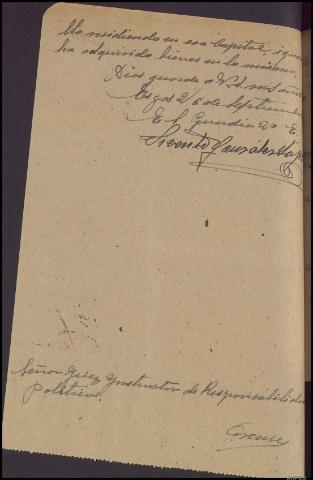 lla residiendo en esa Capital, igno
ha adquirido bienes en la misma.
Dios guarde a V.S. m
Esgos 26 de Septiembre
El Guardia 2º E.
Vicente González
Señor Juez Ynstructor de Responsabilida
Políticas.
Orense